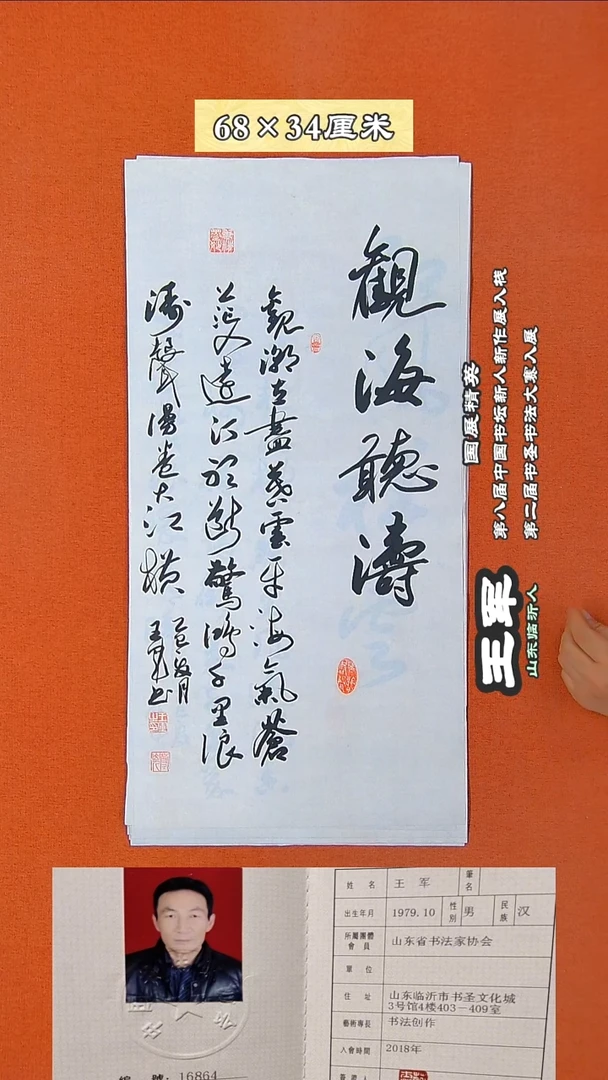 68×34厘米
觀海聽濤
觀潮立盡暮雲平海氣蒼
茫入遠
驚鴻千里浪
濤聲漫卷大江橫
王軍書
国展精英
第八届中国书坛新人新作展入展
第二届书圣书法大赛入展
王军
山东临沂人
姓 名 王 军 筆名
出生年月 1979.10 性別 男 民族 汉
所屬團體會員 山东省书法家协会
單 位
住 址 山东临沂市书圣文化城
3号馆4楼403—409室
藝術專長 书法创作
入會時間 2018年
編 號: 16864